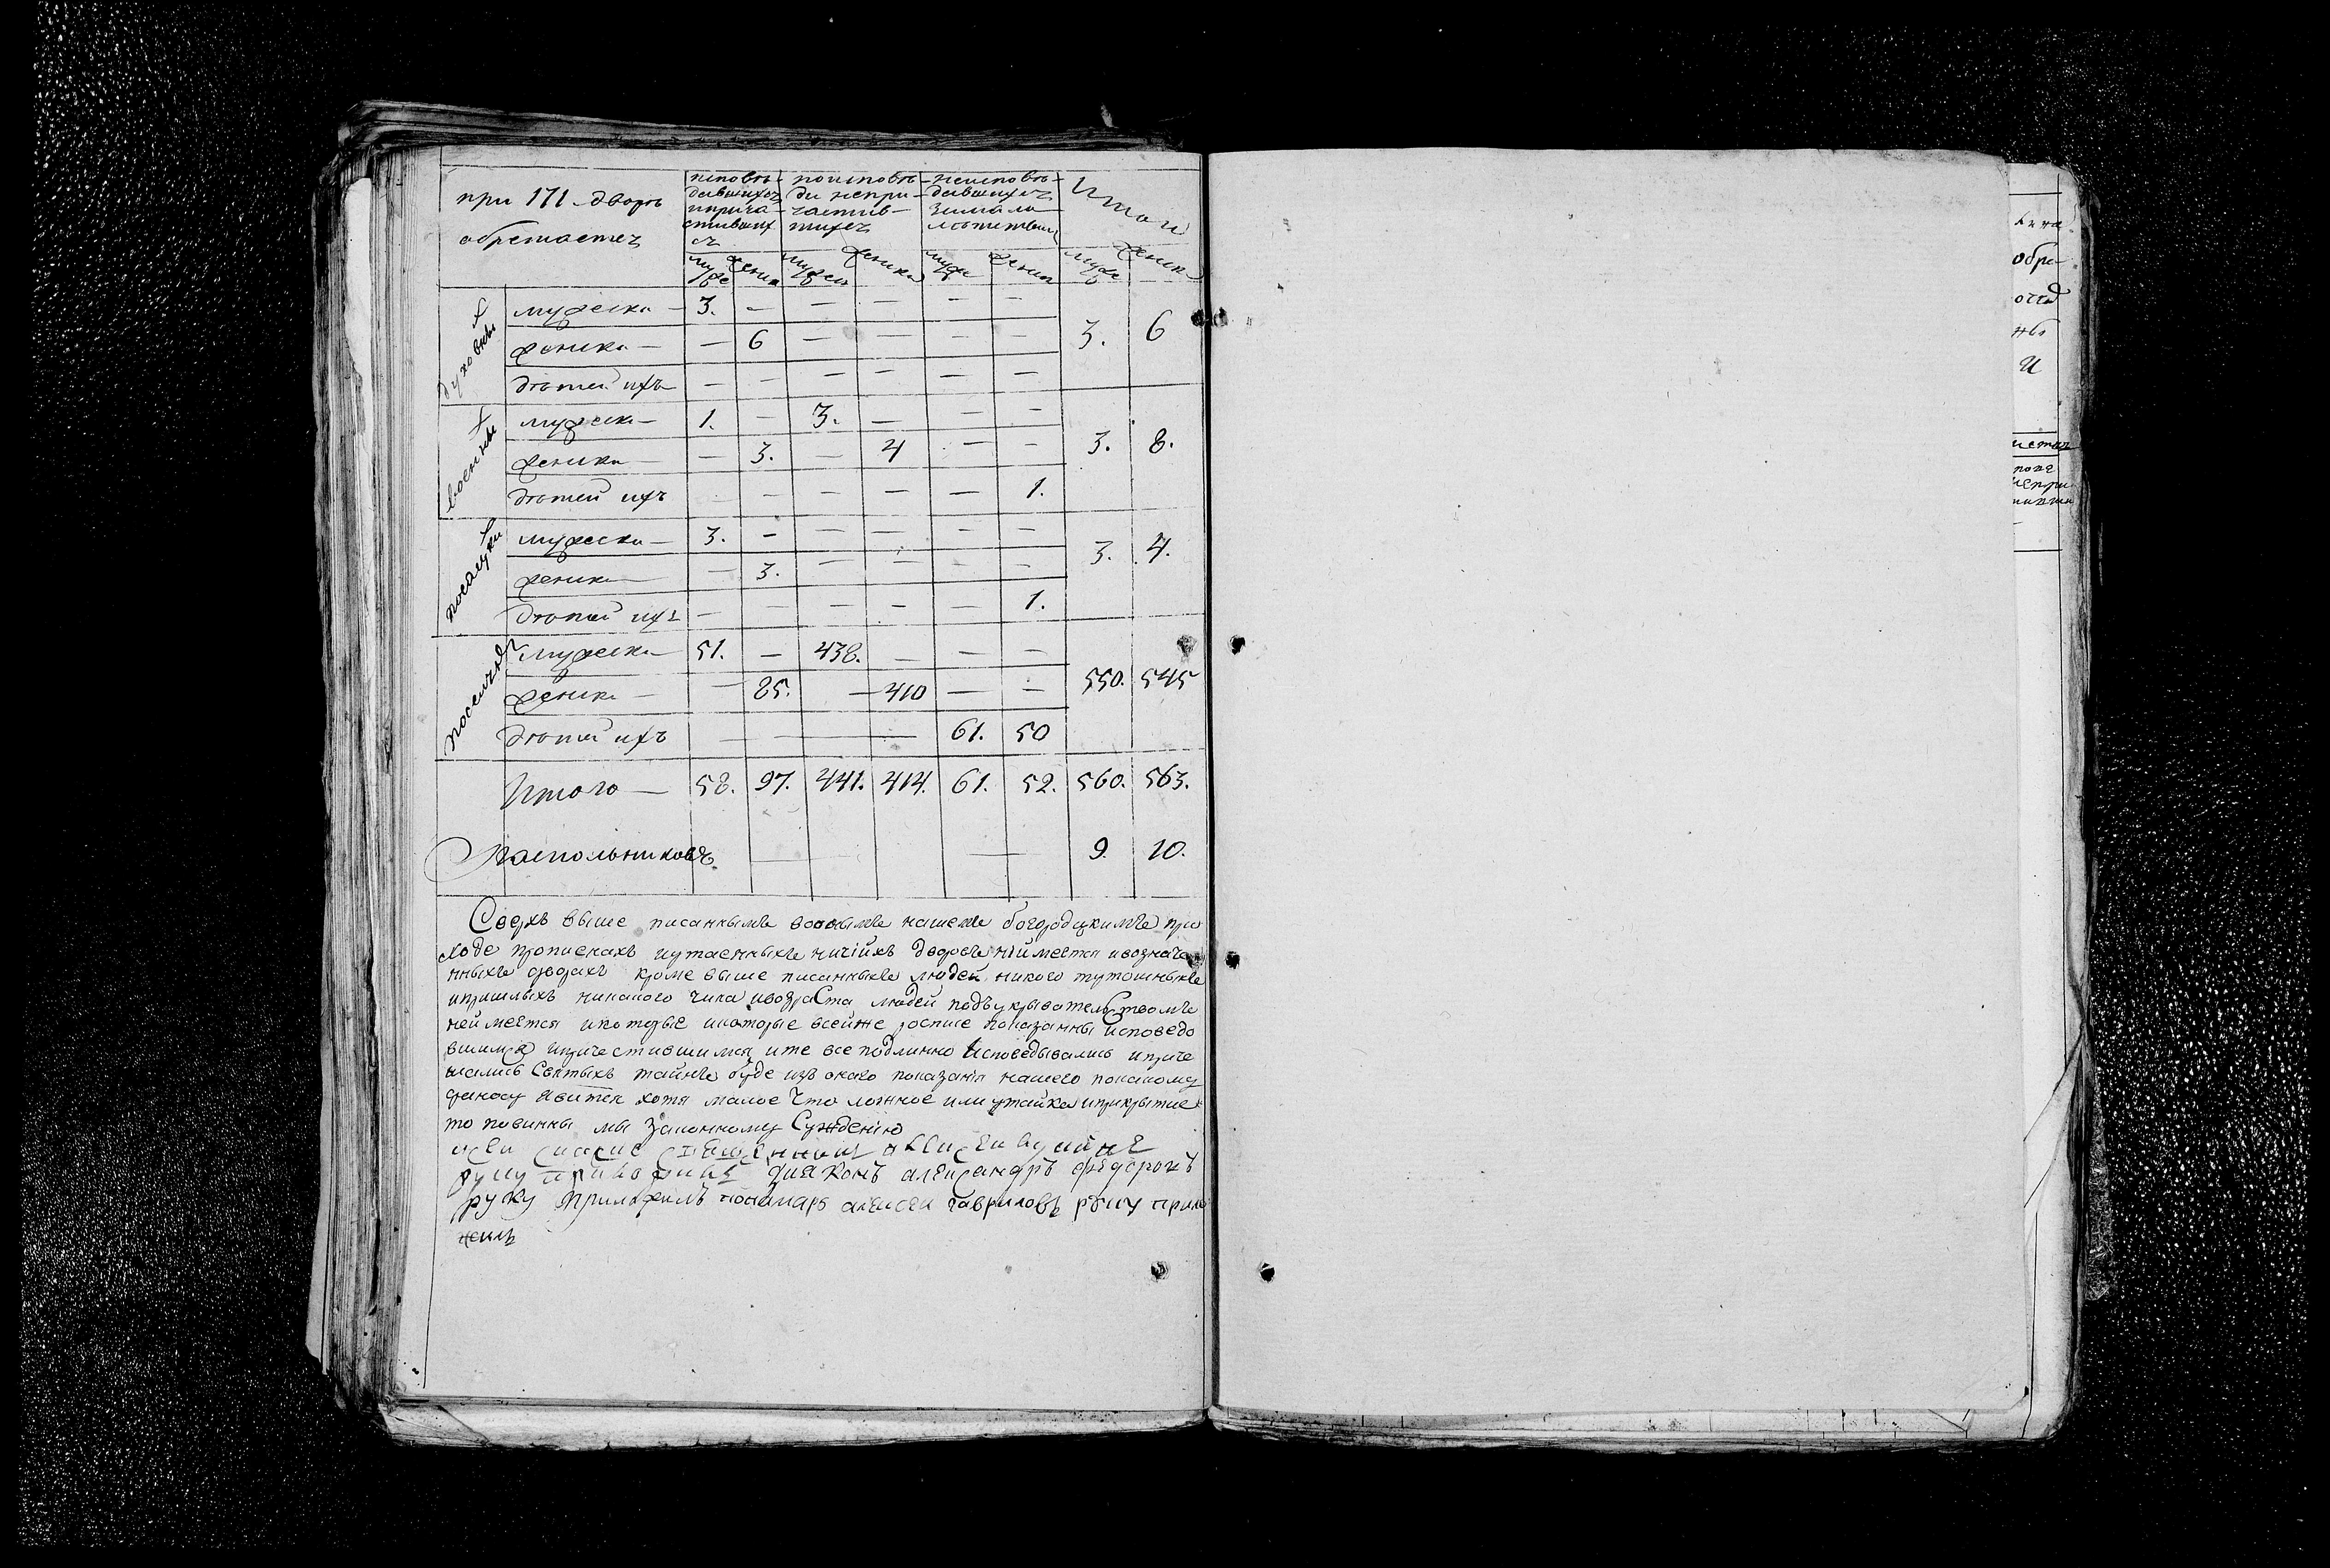 при 171 дворъ
обретаетца
исповѣ-
давшихся
иприча-
стивших
съ
поисповѣ
ди непри-
частив-
шихся
неисповѣ-
давшихся
замало
лѣтствиемъ
Итого
муже женск мужеск женска муже женск муже женск
духовны
мужеска 3. — — — — — 3. 6
женска — 6 — — — —
дѣтей ихъ — — — — — —
военны
мужеска 1. — 3. — — — 3. 8.
женска — 3. — 4 — —
дѣтей ихъ — — — — — 1.
посацки
мужеска 3. — — — — — 3. 4.
женска — 3. — — — —
дѣтей ихъ — — — — — 1.
поселянъ
мужеска 51. — 438. — — — 550. 545
женска — 85. — 410 — —
дѣтей ихъ — — — — 61. 50
Итого — 58. 97. 441. 414. 61. 52. 560. 563.
Распольниковъ — — 9. 10.
Сверхъ выше писанныхъ воономъ нашемъ богородцкимъ при
ходе прописнахъ иутаенныхъ ничіихъ дворовъ нііметца ивозначе
нныхъ дворахъ кроме выше писанныхъ людей никого тутошныхъ
ипришлыхъ никакого чина ивозраста людей подъукрывателствомъ
неимеетца икоторые икоторые всейже росписе показанны исповедо
вшимся ипричестившимся ите все подлинно исповедывались ипричи
щались Святыхъ тайнъ буде изъ онаго показанія нашего покакому
доносу явитца хотя малое что ложное или утайка иприкрытие
то повинны мы законному Суждению
ксеи росписе священникъ алексеи
руку приложилъ диаконъ александръ федоровъ
руку приложилъ понамарь алексеи гавриловъ руку прило
жилъ
обре
ни
И